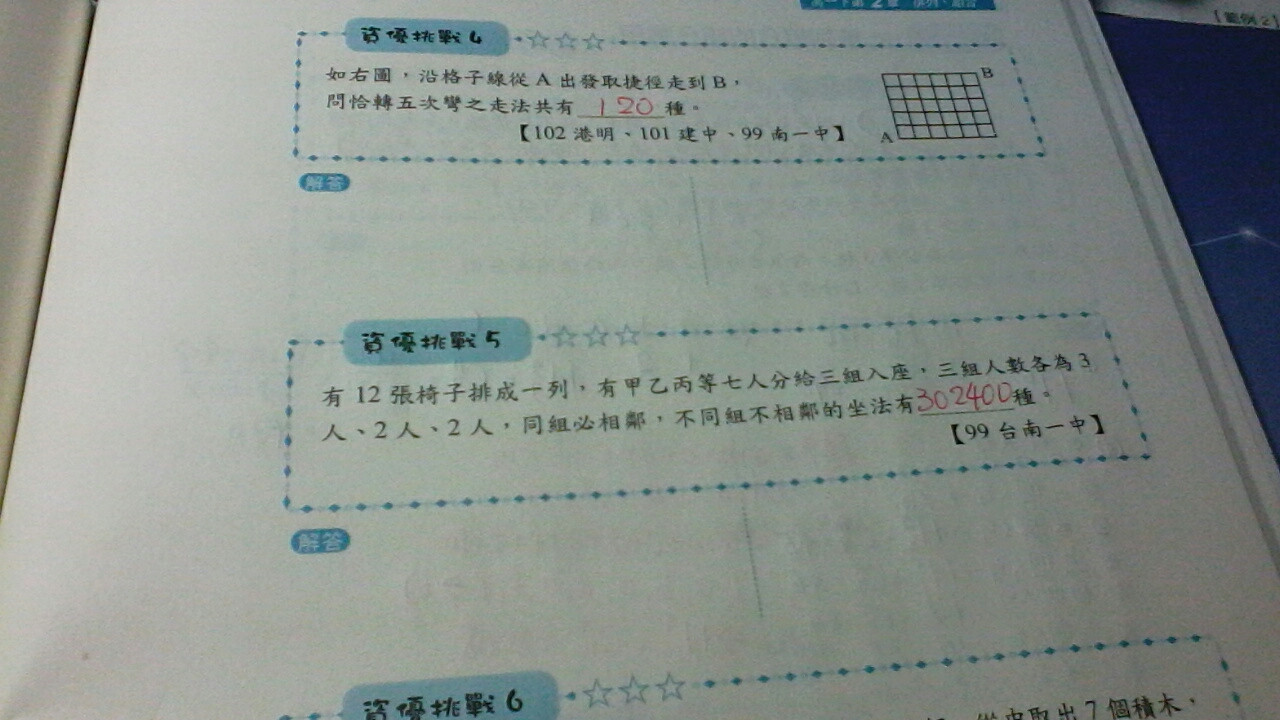 【範例2】
資優挑戰4 ☆☆☆
如右圖，沿格子線從 A 出發取捷徑走到 B，
問恰轉五次彎之走法共有 120 種。
【102 港明、101 建中、99 南一中】
A
B
解答
資優挑戰5 ☆☆☆
有 12 張椅子排成一列，有甲乙丙等七人分給三組入座，三組人數各為 3
人、2 人、2 人，同組必相鄰，不同組不相鄰的坐法有302400種。
【99 台南一中】
解答
資優挑戰6 ☆☆☆
從中取出7個積木，